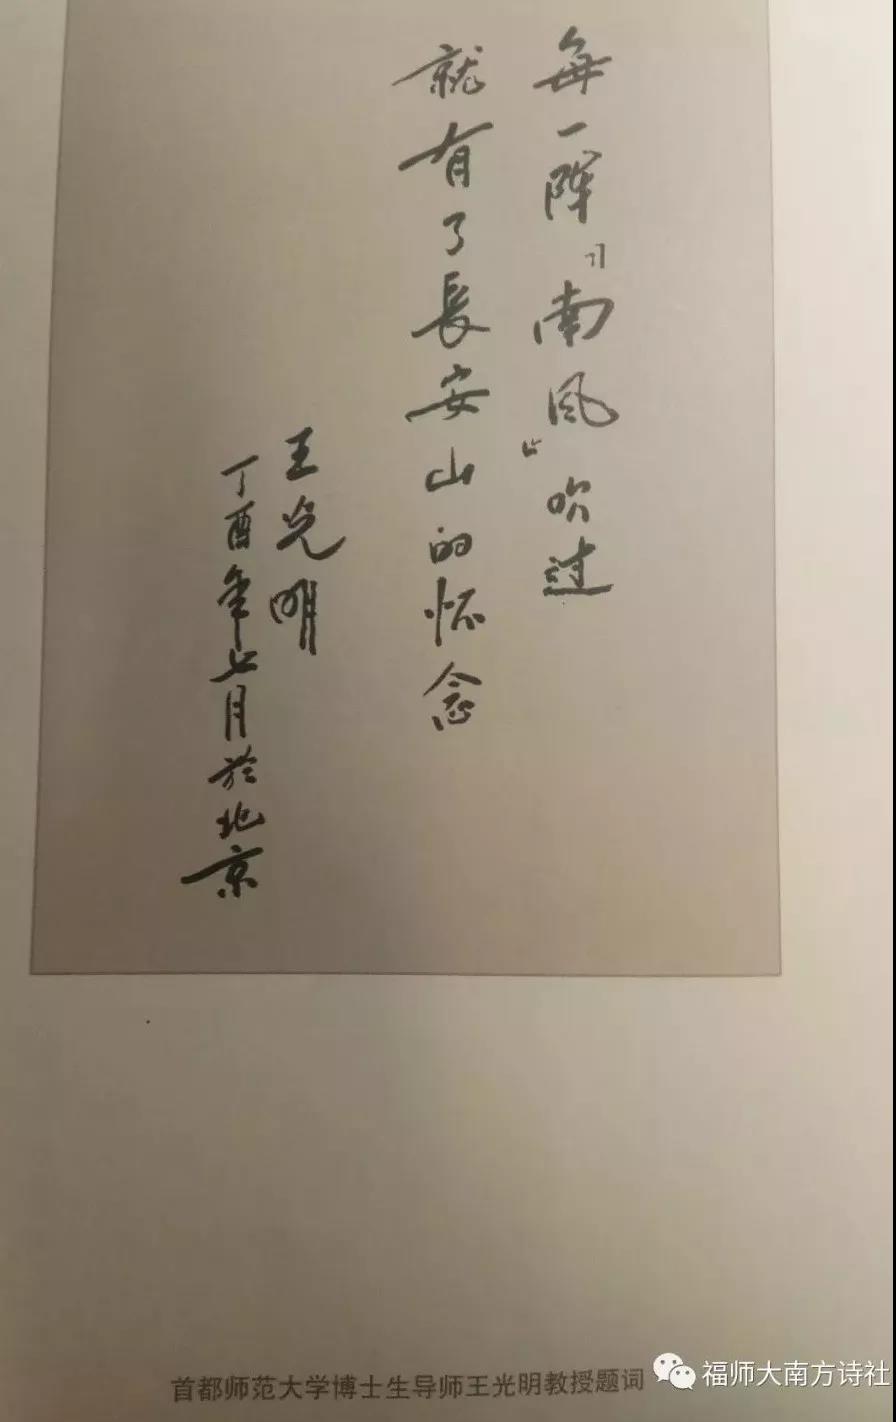 每一陣『南风』吹过
就有了長安山的怀念
王光明
丁酉年七月於北京
首都师范大学博士生导师王光明教授题词
福师大南方诗社